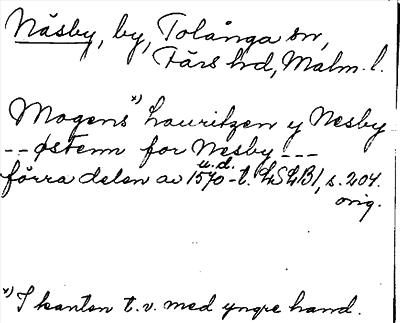 Näsby, by, Tolånga sn,
Färs hd, Malm. l.
Mogens x) Lauritzen y Nesby
-- østenn for Nesby ---
förra delen av 1570-t. u.d. LSLB1, s. 204.
orig.
x) I kanten t.v. med yngre hand.